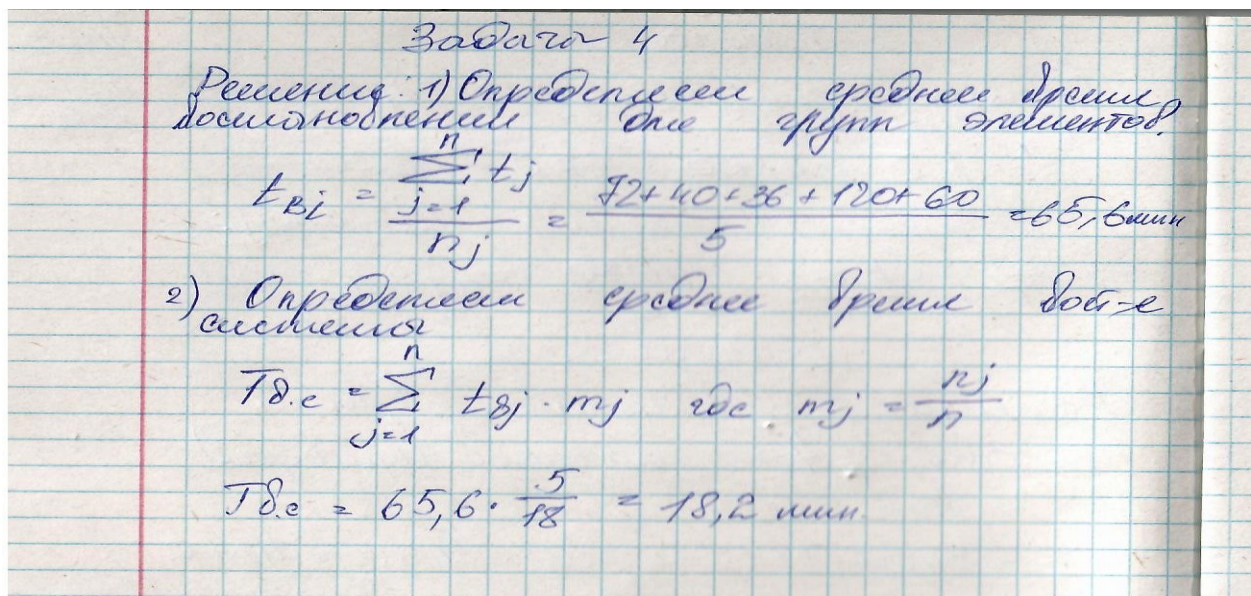 Задача 4
Решение: 1) Определяем среднее время
восстановления для групп элементов.
t_Bi = \frac{\sum_{j=1}^{n} t_j}{n_j} = \frac{72+40+36+120+60}{5} = 65,6 мин
2) Определяем среднее время вост-е
системы
T_{в.с} = \sum_{j=1}^{n} t_{вj} · m_j где m_j = \frac{n_j}{n}
T_{в.с} = 65,6 · \frac{5}{18} = 18,2 мин